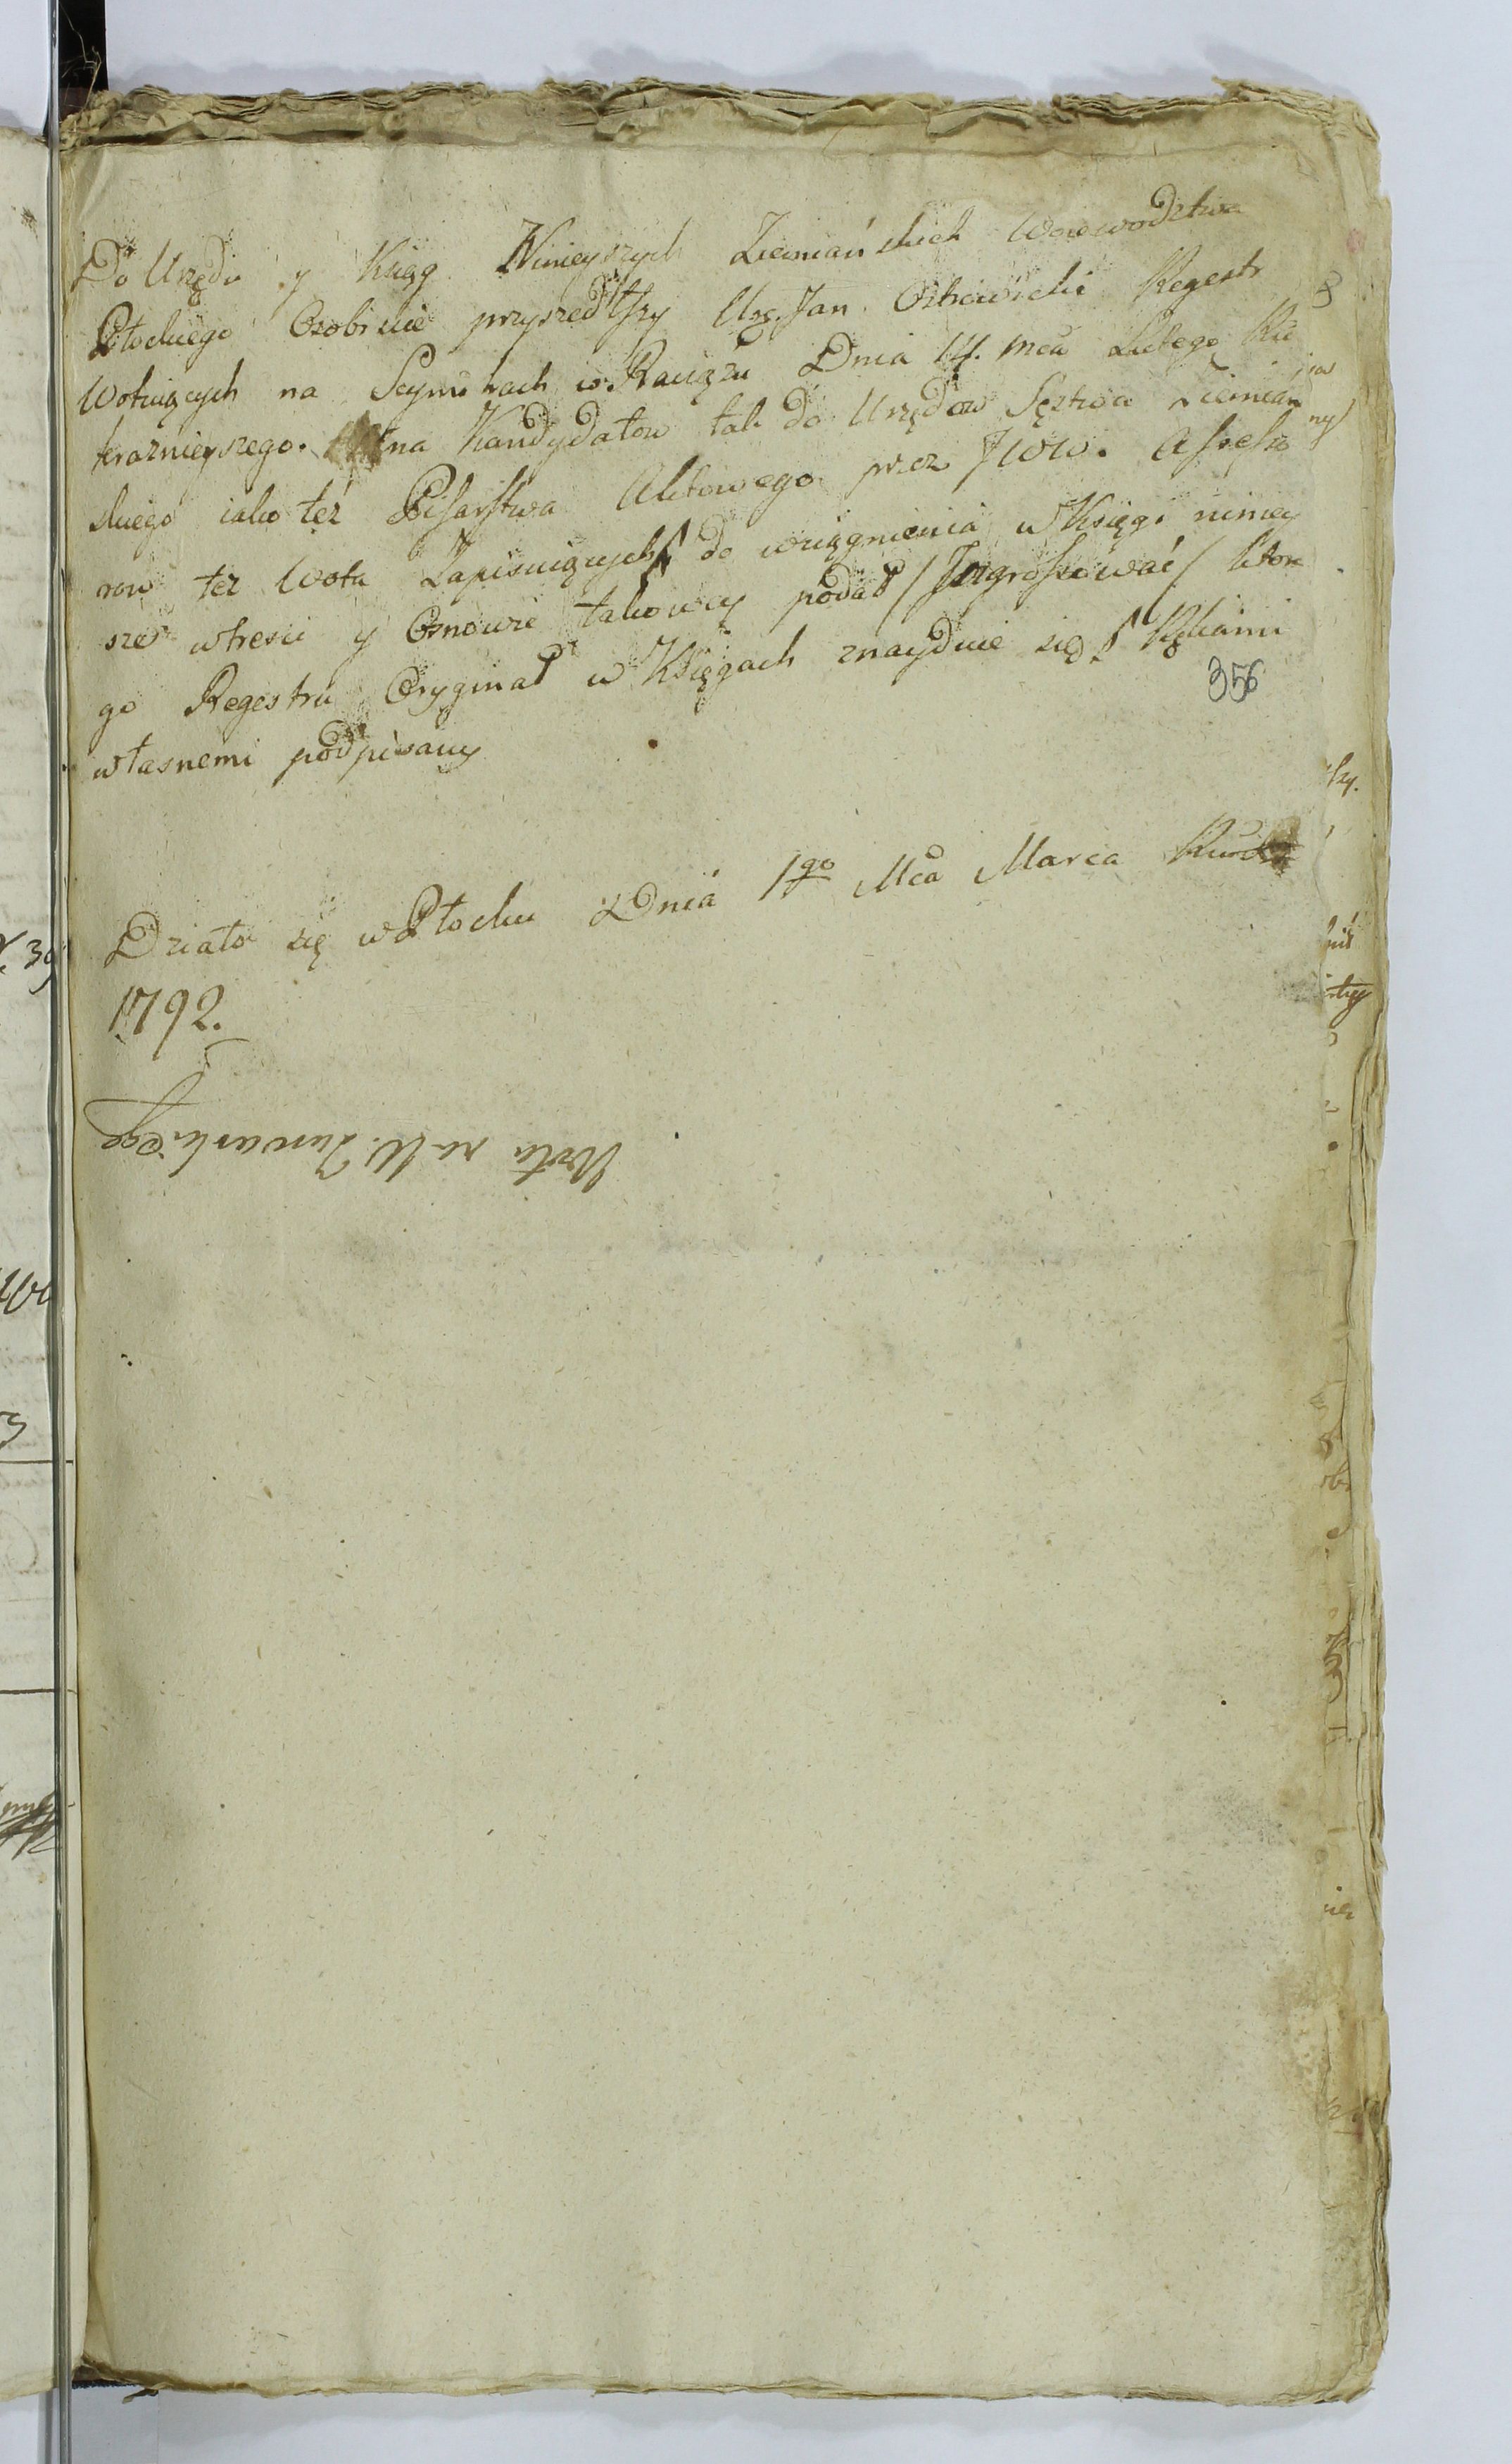 Do Urzędu y Xiąg Ninieyszych Ziemiańskich Woiewodztwa
Płockiego Osobiscie przyszedłszy Urg. Jan Ostrowicki Regestr
Wotuiących na Seymikach w Raciążu Dnia 14. Mca Lutego Ru
teraznieyszego. na Kandydatow tak do Urzędow Sęstwa Ziemiań
skiego iako też Pisarstwa Aktowego przez JWW. Assesso
row też Wota Zapisuiących do wciągnienia w Księgi niniey
sze w tresci y Osnowie takowey podał / Ingrossować / ktore
go Regestru Oryginał w Księgach znayduie się Rękami
własnemi podpisany
356
Działo się w Płocku Dnia 1go Mca Marca
1792.
Wota na W. Zurawskiego